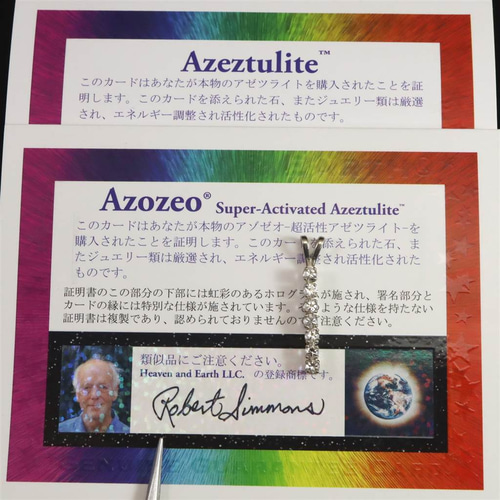 Azeztulite™
このカードはあなたが本物のアゼツライトを購入されたことを証
明します。このカードを添えられた石、またジュエリー類は厳選
され、エネルギー調整され活性化されたものです。
Azozeo® Super-Activated Azeztulite™
このカードはあなたが本物のアゾゼオ-超活性アゼツライト-を
購入されたことを証明します。このカードに添えられた石、ま
たジュエリー類は厳選され、エネルギー調整され活性化された
ものです。
証明書のこの部分の下部には虹彩のあるホログラムが施され、署名部分と
カードの縁には特別な仕様が施されています。そのような仕様を持たない
証明書は複製であり、認められておりませんのでご注意ください。
類似品にご注意ください。
Heaven and Earth LLC. の登録商標です。
Robert Simmons